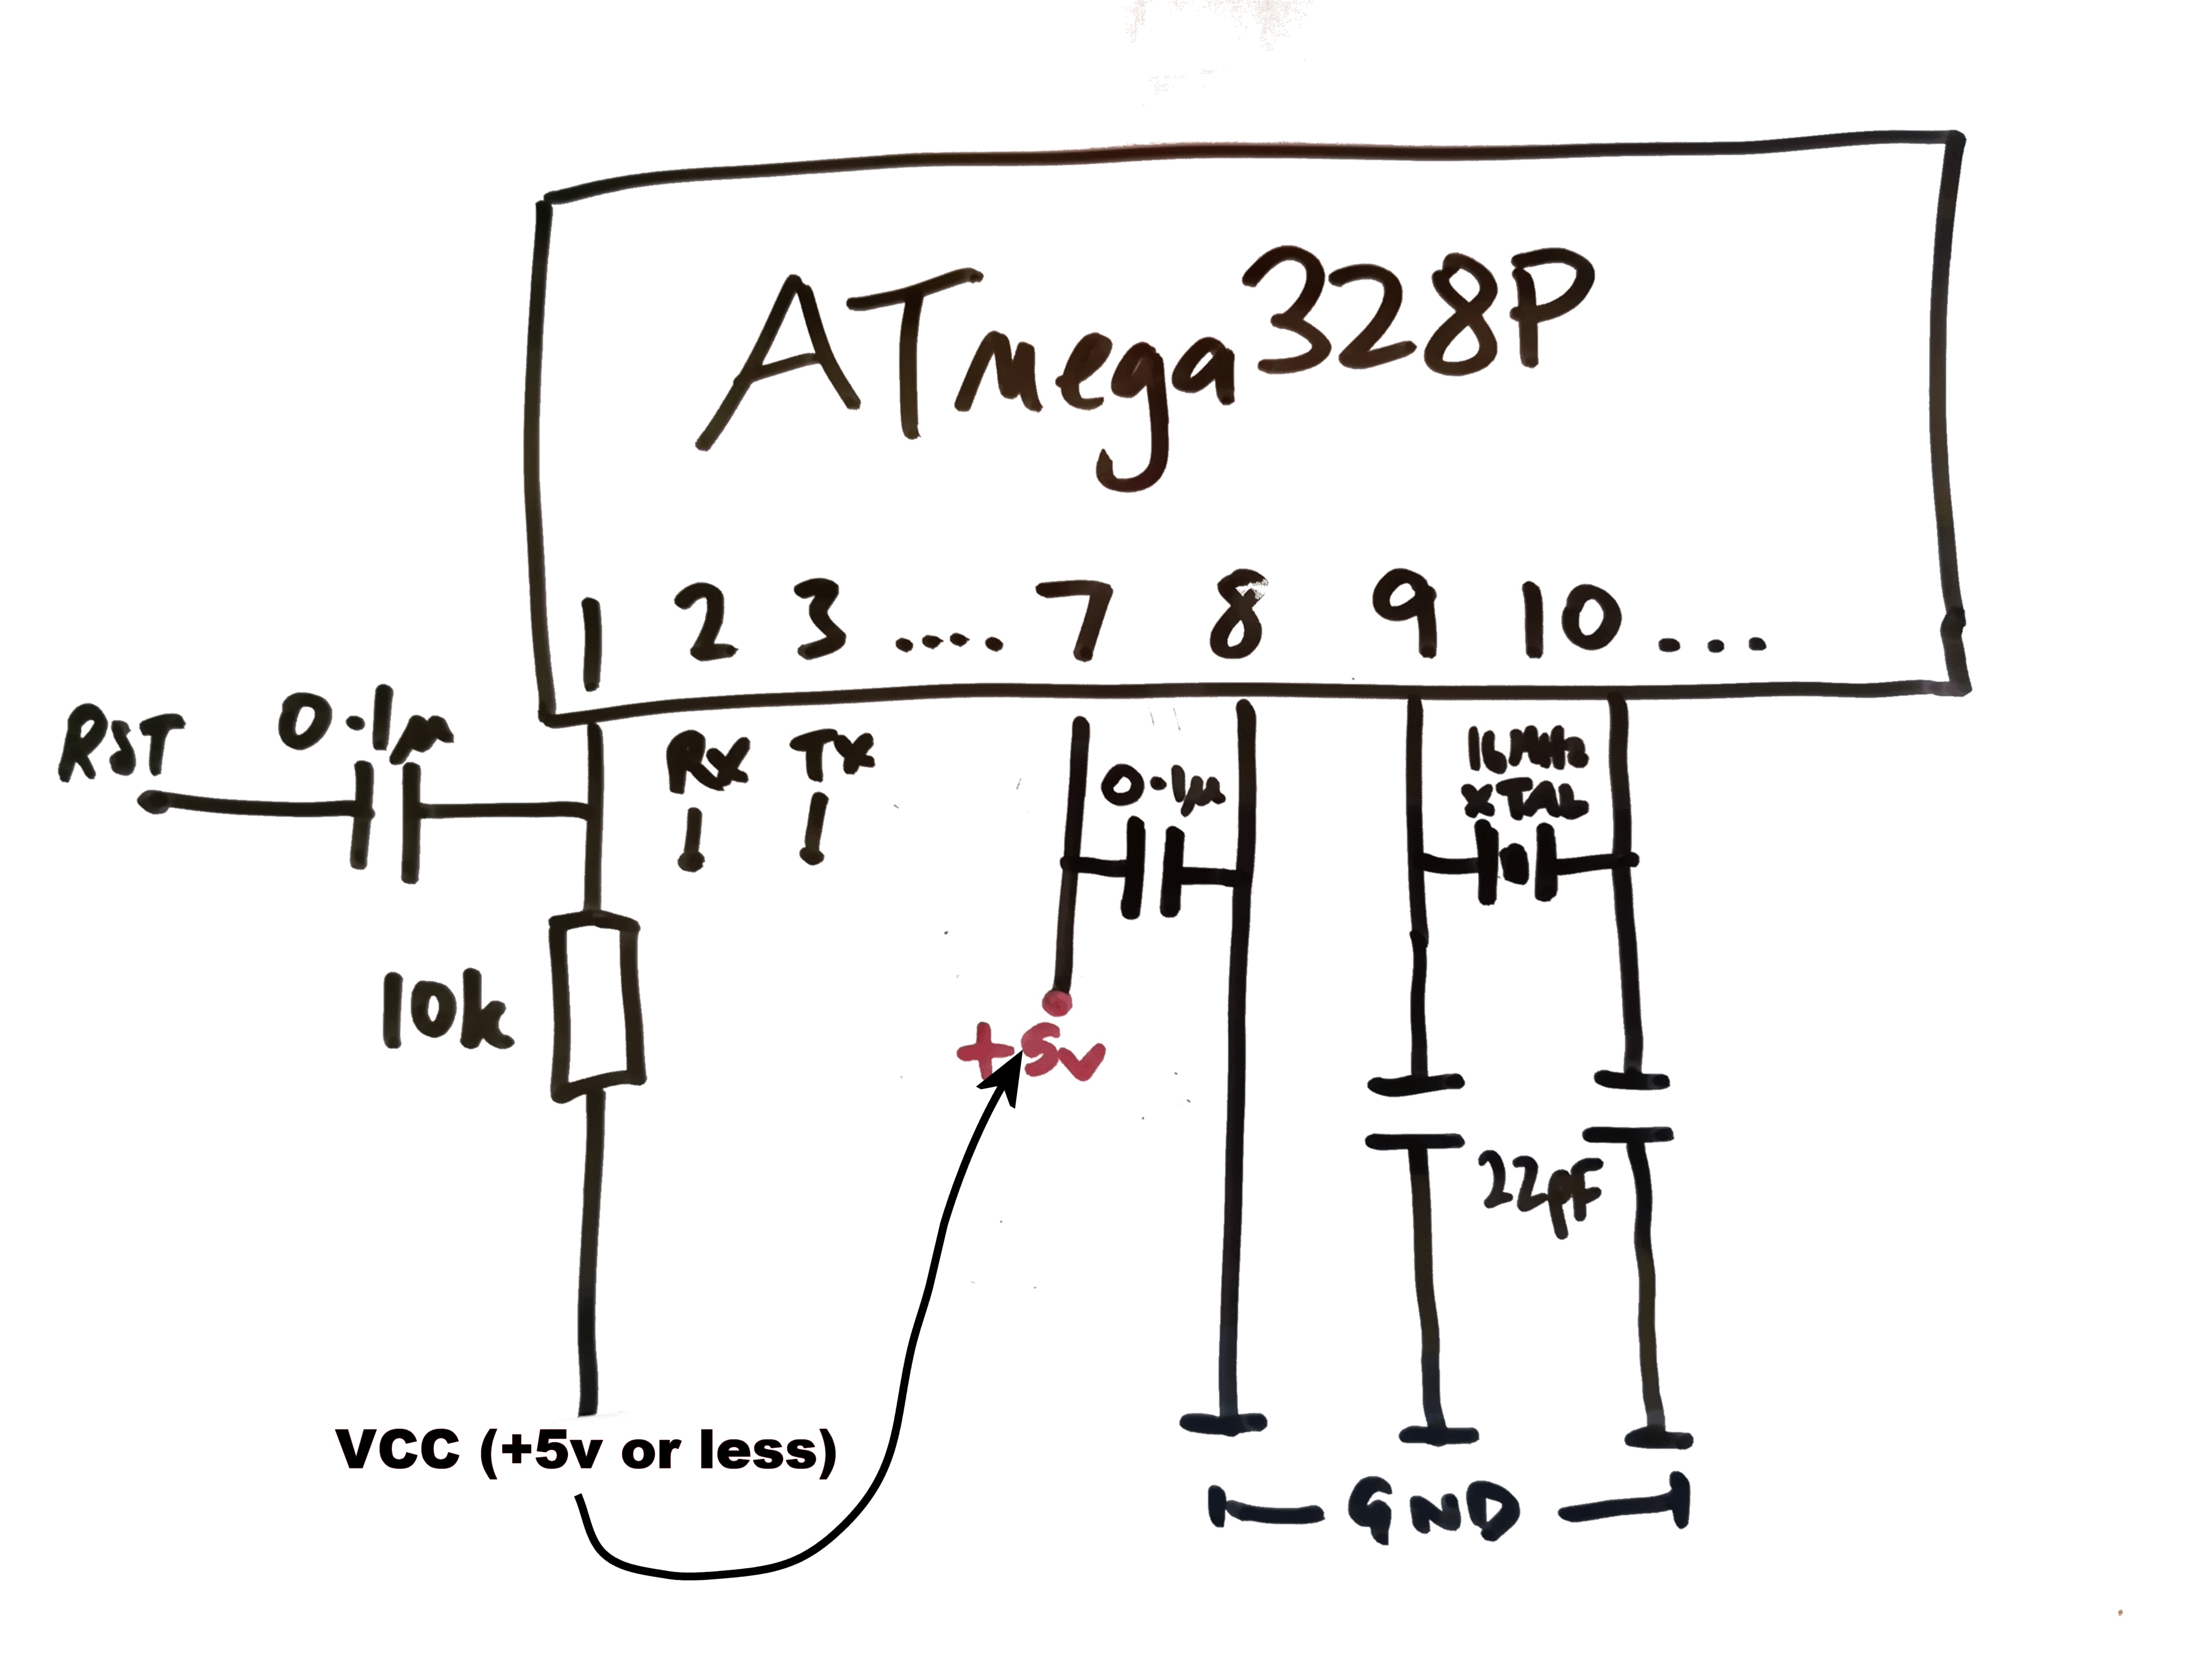 ATmega328P
1 2 3 ..... 7 8 9 10 ...
RST
0.1μ
Rx
Tx
0.1μ
16MHz
XTAL
10k
+5v
22pF
VCC (+5v or less)
GND